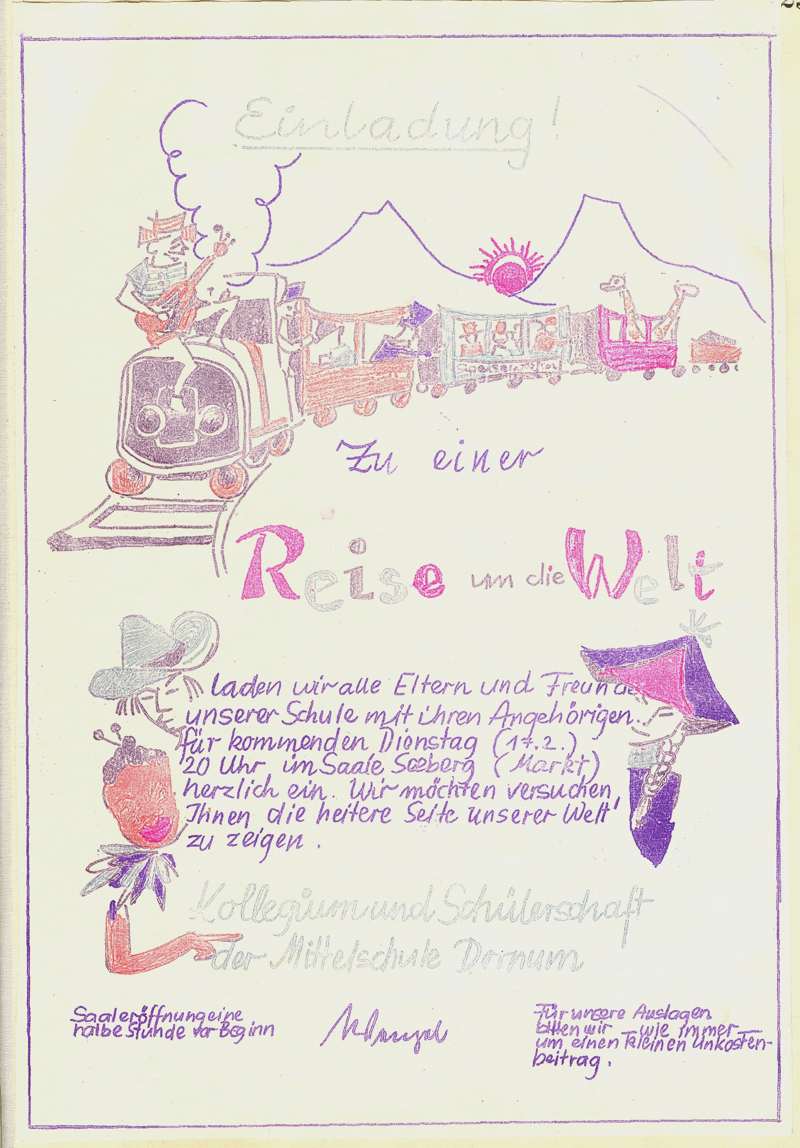 Einladung!
Speisewagen
Zu einer
Reise um die Welt
laden wir alle Eltern und Freunde
unserer Schule mit ihren Angehörigen
für kommenden Dienstag (17.2.)
20 Uhr im Saale Seeberg (Markt)
herzlich ein. Wir möchten versuchen,
Ihnen die heitere Seite unserer Welt'
zu zeigen.
Kollegium und Schülerschaft
der Mittelschule Dornum
Saaleröffnung eine
halbe Stunde vor Beginn
Für unsere Auslagen
bitten wir – wie immer –
um einen kleinen Unkosten-
beitrag.